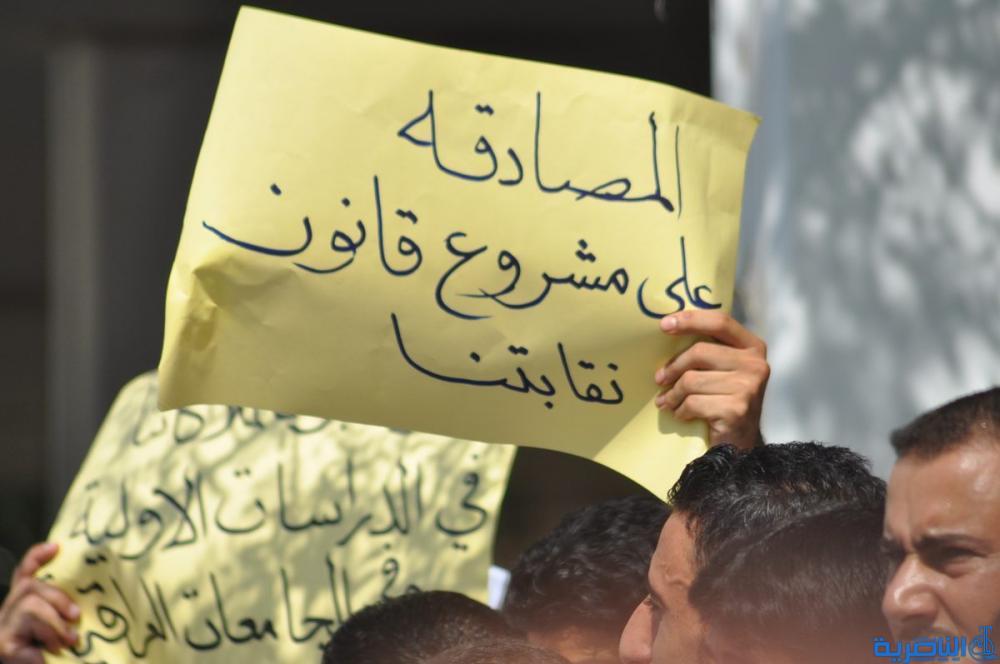 المصادقه
على مشروع قانون
نقابتنا
في الدراسات الاولية
وفي الجامعات العراقية
الناصرية